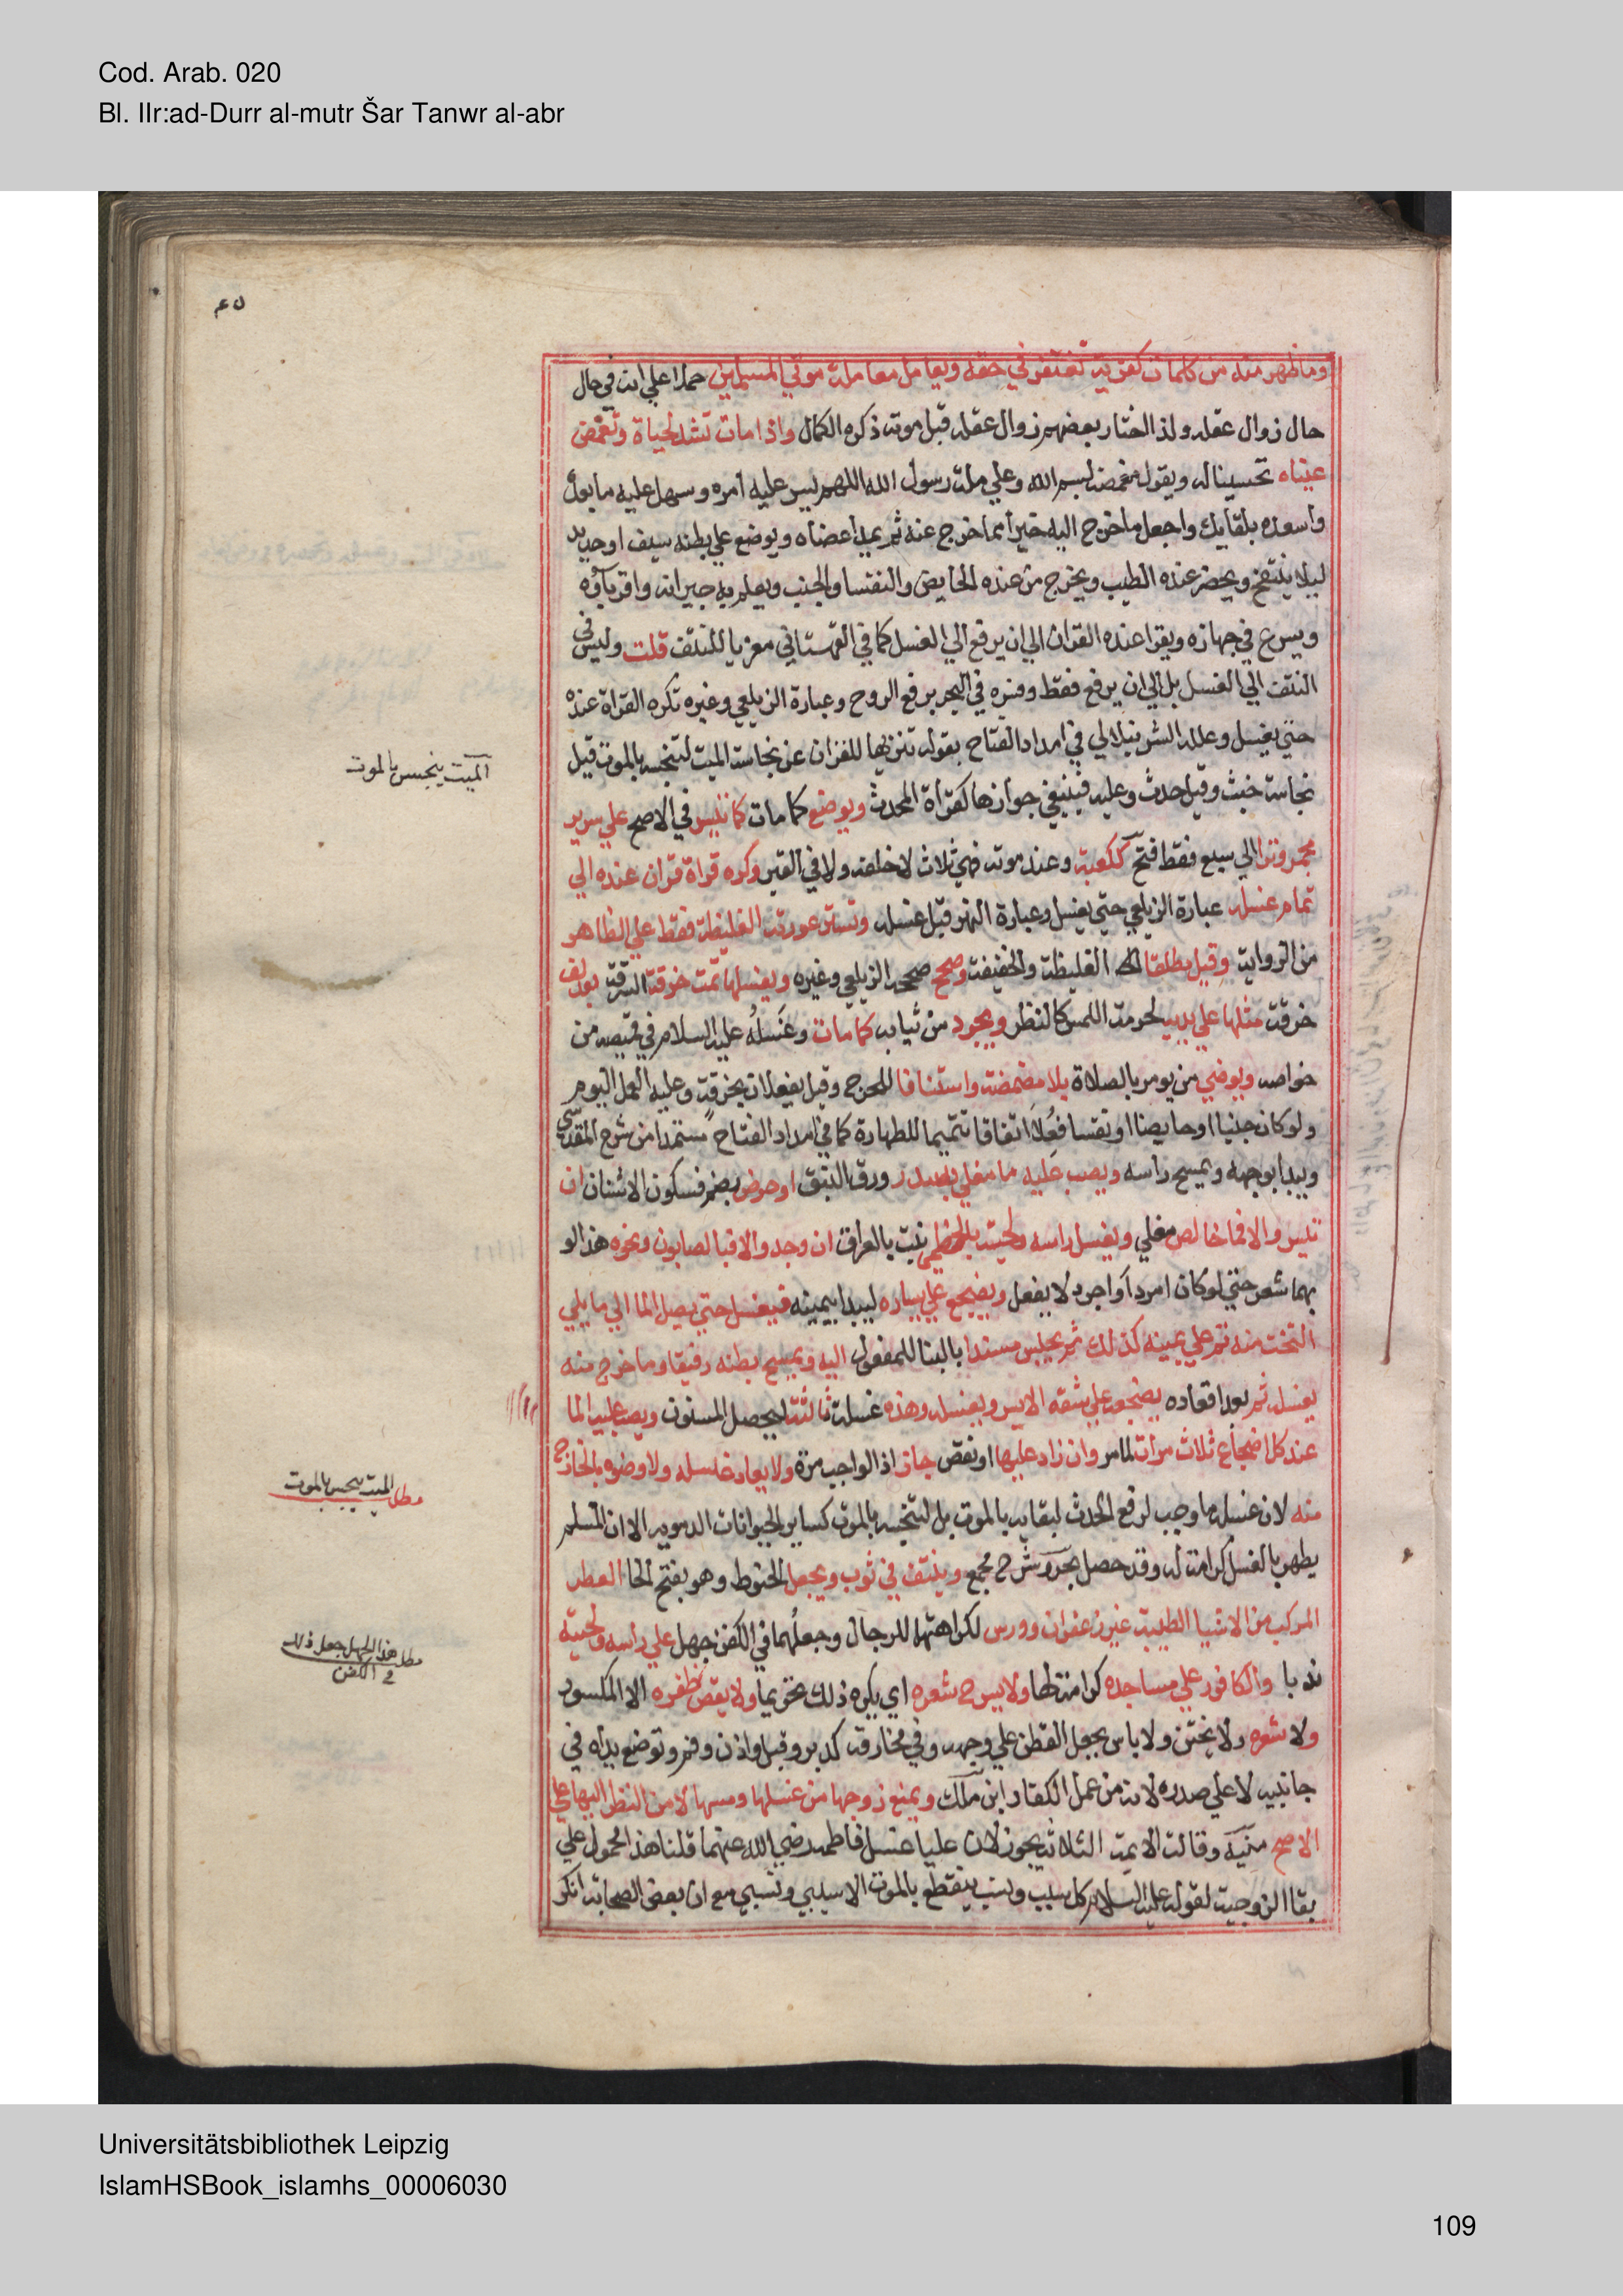 Cod. Arab. 020
Bl. IIr:ad-Durr al-mutr Šar Tanwr al-abr
وما ظهر منه من كلمات كفرية تغتفر في حقه ويعامل معاملة موتي المسلمين حملا علي انه في حال
حال زوال عقله ولذا اختار بعضهم زوال عقله قبل موته ذكره الكمال واذا مات تشد لحياة وتغمض
عيناه تحسينا له ويقول مغمضه بسم الله وعلي ملة رسول الله اللهم يسر عليه امره وسهل عليه ما بعده
واسعده بلقايك واجعل ما خرج اليه خيرا مما خرج عنه ثم يمد اعضاه ويوضع علي بطنه سيف او حديد
ليلا ينتفخ ويحضر عنده الطيب ويخرج من عنده الحايض والنفسا والجنب ويعلم به جيرانه واقرباؤه
ويسرع في جهازه ويقرا عنده القران الي ان يرفع الي الغسل كما في القهستاني معزيا للنتف قلت وليس في
النتف الي الغسل بل الي ان يرفع فقط وفسره في البحر برفع الروح وعبارة الزيلعي وغيره تكره القراة عنده
حتي يغسل وعلله الشرنبلالي في امداد الفتاح بقوله تنزيها للقران عن نجاسة الميت لتنجسه بالموت قيل
نجاسة خبث وقيل حدث وعليه فينبغي جوازها كقراة المحدث ويوضع كما مات كما تيسر في الاصح علي سرير
مجمر وترا الي سبع فقط فتح ككعبة وعند موته فهي ثلاث لا خلفه ولا في القبر وكره قراة قران عنده الي
تمام غسله عبارة الزيلعي حتي يغسل وعبارة النهر قبل غسله وتستر عورته الغليظة فقط علي الظاهر
من الرواية وقيل مطلقا الغليظة والخفيفة وصحح صححه الزيلعي وغيره ويغسلها تحت خرقة السرة بعد لف
خرقة مثلها علي يديه لحرمة اللمس كالنظر ويجرد من ثيابه كما مات وغسله عليه السلام في قميصه من
خواصه ويوضي من يومر بالصلاة بلا مضمضة واستنشاق للحرج وقيل يفعلان بخرقة وعليه العمل اليوم
ولو كان جنبا او حايضا او نفسا فعلا اتفاقا تتميما للطهارة كما في امداد الفتاح مستمدا من شرح المقدسي
ويبدا بوجهه ويمسح راسه ويصب عليه ما مغلي بسدر ورق النبق او حرض بضم فسكون الاشنان ان
تيسر والا فما خالص مغلي ويغسل راسه ولحيته بالخطمي نبت بالعراق ان وجد والا فبالصابون ونحوه هذا لو
بهما شعر حتي لو كان امردا او اجرد لا يفعل ويضجع علي يساره ليبدا بيمينه فيغسل حتي يصل الما الي ما يلي
التخت منه ثم علي يمينه كذلك ثم يجلس مستندا بالبنا للمفعول اليه ويمسح بطنه رفيقا وما خرج منه
يغسله ثم بعد اقعاده يضجعه علي شقه الايسر ويغسله وهذه غسلة ثالثة ليحصل المسنون ويصب عليه الما
عند كل اضجاع ثلاث مرات لما مر وان زاد عليها او نقص جاز اذ الواجب مرة ولا يعاد غسله ولا وضوه بالخارج
منه لان غسله ما وجب لرفع الحدث لبقايه بالموت بل لتنجسه بالموت كساير الحيوانات الدموية الا ان المسلم
يطهر بالغسل كرامة له وقد حصل بحر وشرح مجمع وينشف في ثوب ويجعل الحنوط وهو بفتح الحا العطر
المركب من الاشيا الطيبة غير زعفران وورس لكراهتهما للرجال وجعلهما في الكفن جهل علي راسه ولحيته
ندبا والكافور علي مساجده كرامة لها ولا يسرح شعره اي يكره ذلك تحريما ولا يقص ظفره الا المكسور
ولا شعره ولا يختن ولا باس بجعل القطن علي وجهه وفي مخارقه كدبر وقبل واذن وفم وتوضع يداه في
جانبيه لا علي صدره لانه من عمل الكفار ابن ملك ويمنع زوجها من غسلها ومسها لا من النظر اليها علي
الاصح منية وقالت الايمة الثلاثة يجوز لان عليا غسل فاطمة رضي الله عنهما قلنا هذا محمول علي
بقا الزوجية لقوله عليه السلام كل سبب ونسب ينقطع بالموت الا سببي ونسبي مع ان بعض الصحابة انكر
الميت ينجس بالموت
مطلب الميت ينجس بالموت
مطلب هذا الجهل جعل ذلك
في الكفن
Universitätsbibliothek Leipzig
IslamHSBook_islamhs_00006030
109